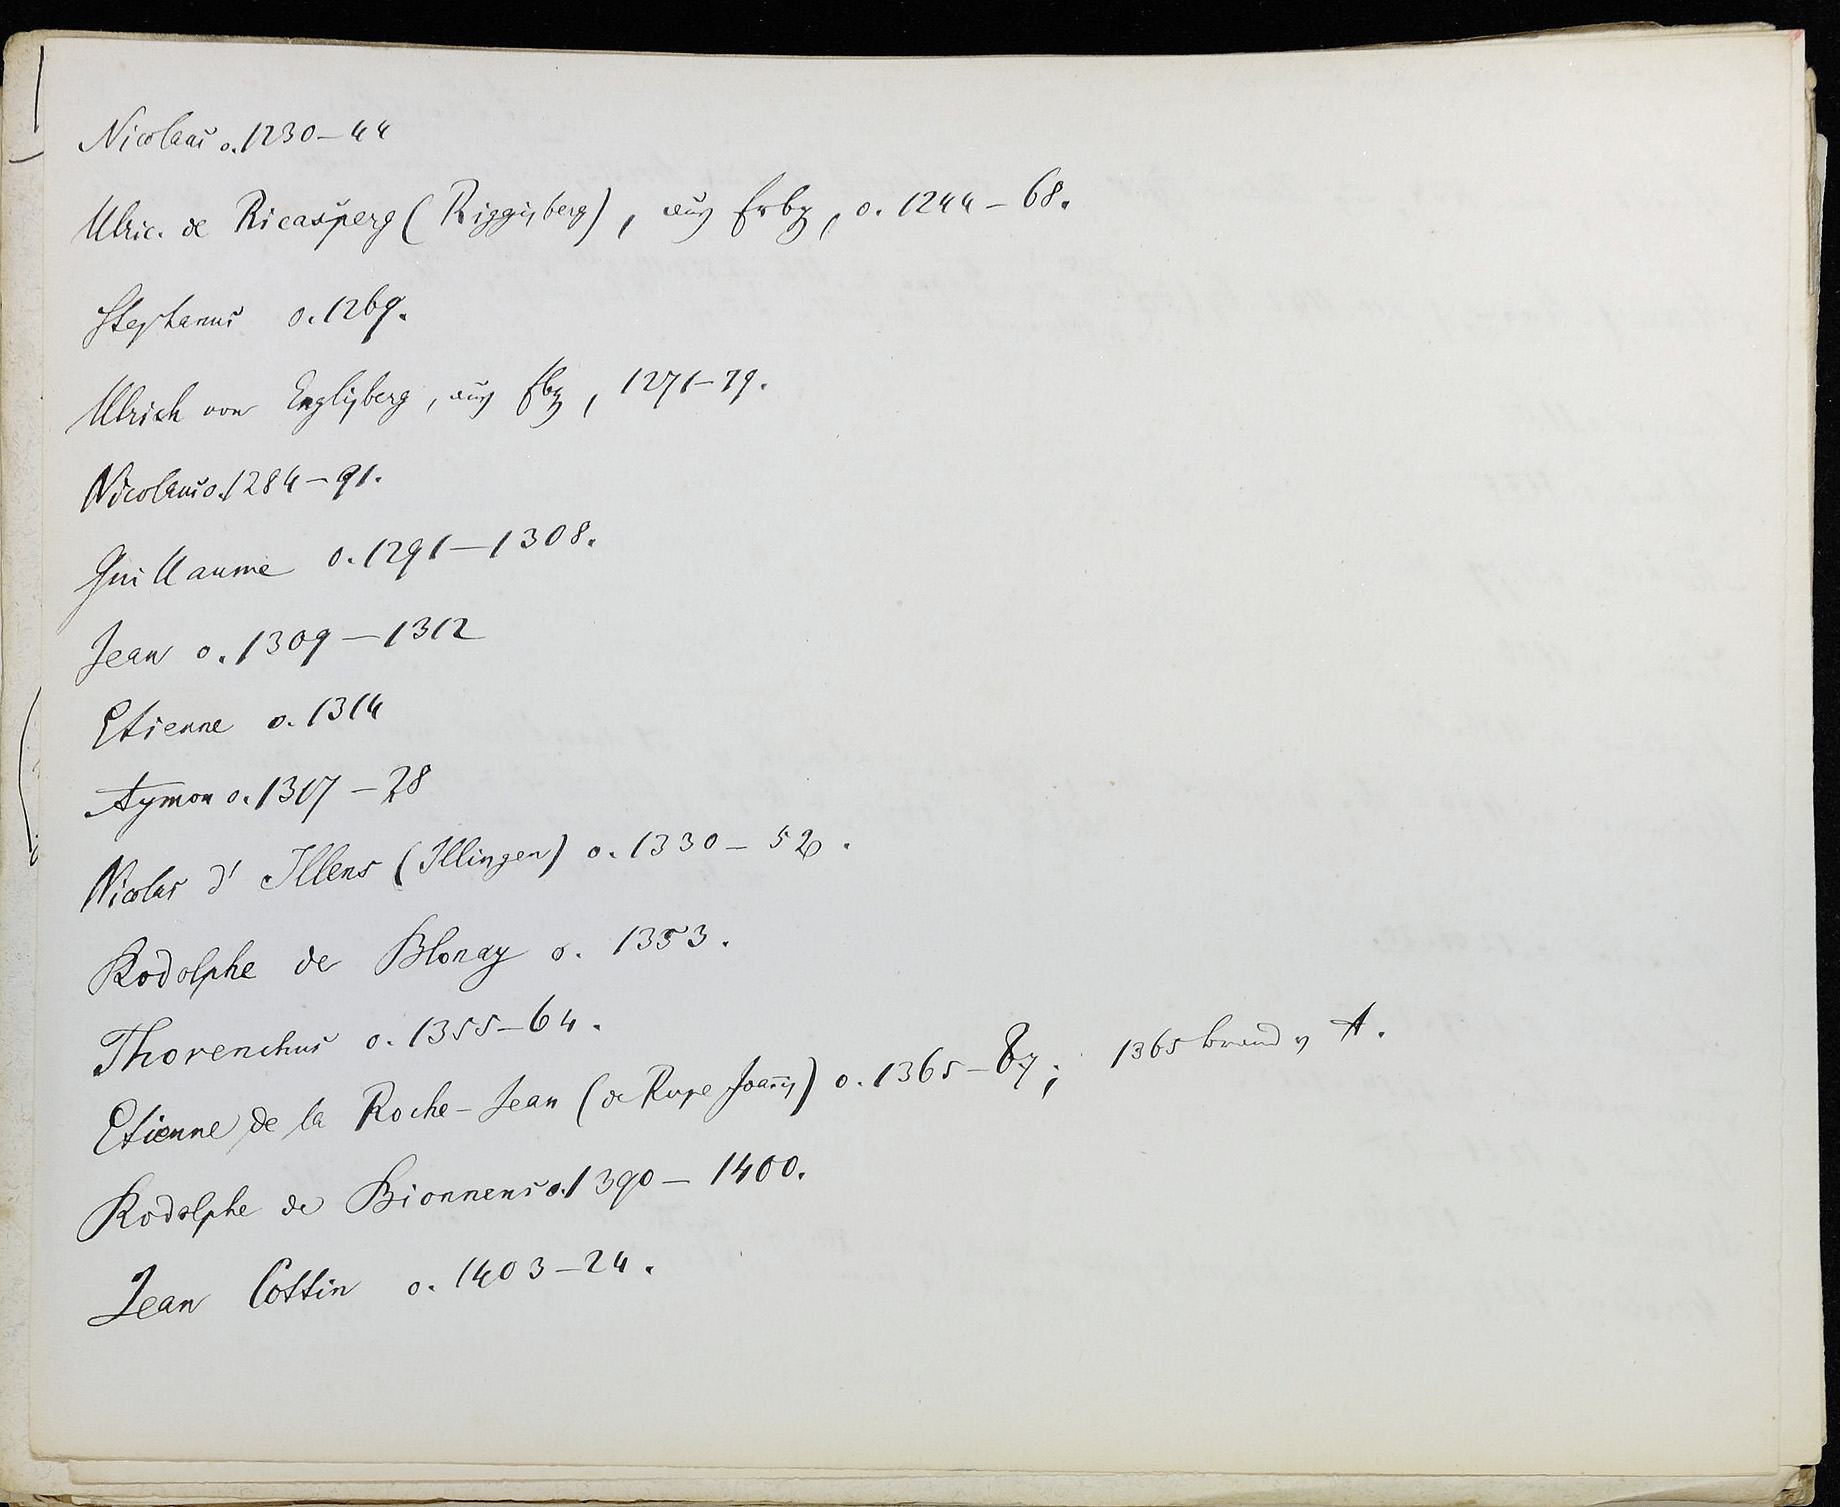 Nicolaus o. 1230–44
Ulric. de Ricasperg (Riggisberg), aus Frbg, o. 1244–68.
Stephanus o. 1269.
Ulrich von Englisberg, aus Fbg, 1271–79.
Nicolaus o. 1284–91.
Guillaume o. 1291–1308.
Jean o. 1309–1312
Etienne o. 1314
Aymon o. 1317–28
Nicolas d'Illens (Illingen) o. 1330–52.
Rodolphe de Blonay o. 1353.
Thorenchus o. 1355–64.
Etienne de la Roche-Jean (de Rupe Joanis) o. 1365–87; 1365 brand A.
Rodolphe de Bionnens o. 1390–1400.
Jean Cottin o. 1403–24.